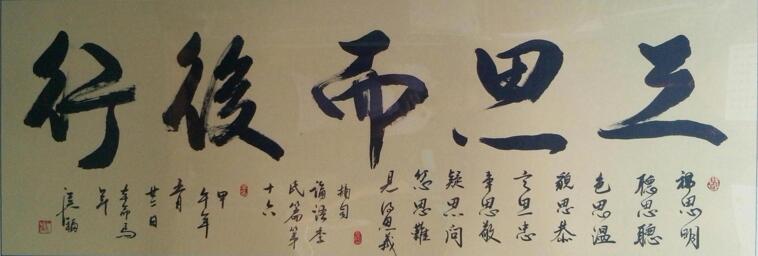 三思而後行
視思明
聽思聰
色思溫
貌思恭
言思忠
事思敬
疑思問
忿思難
見得思義
摘句
論語季
氏篇第
十六
甲
午年
月
廿二日
馬
年